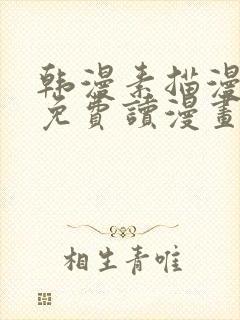 韩漫素描漫
免費讀漫畫
相生青唯